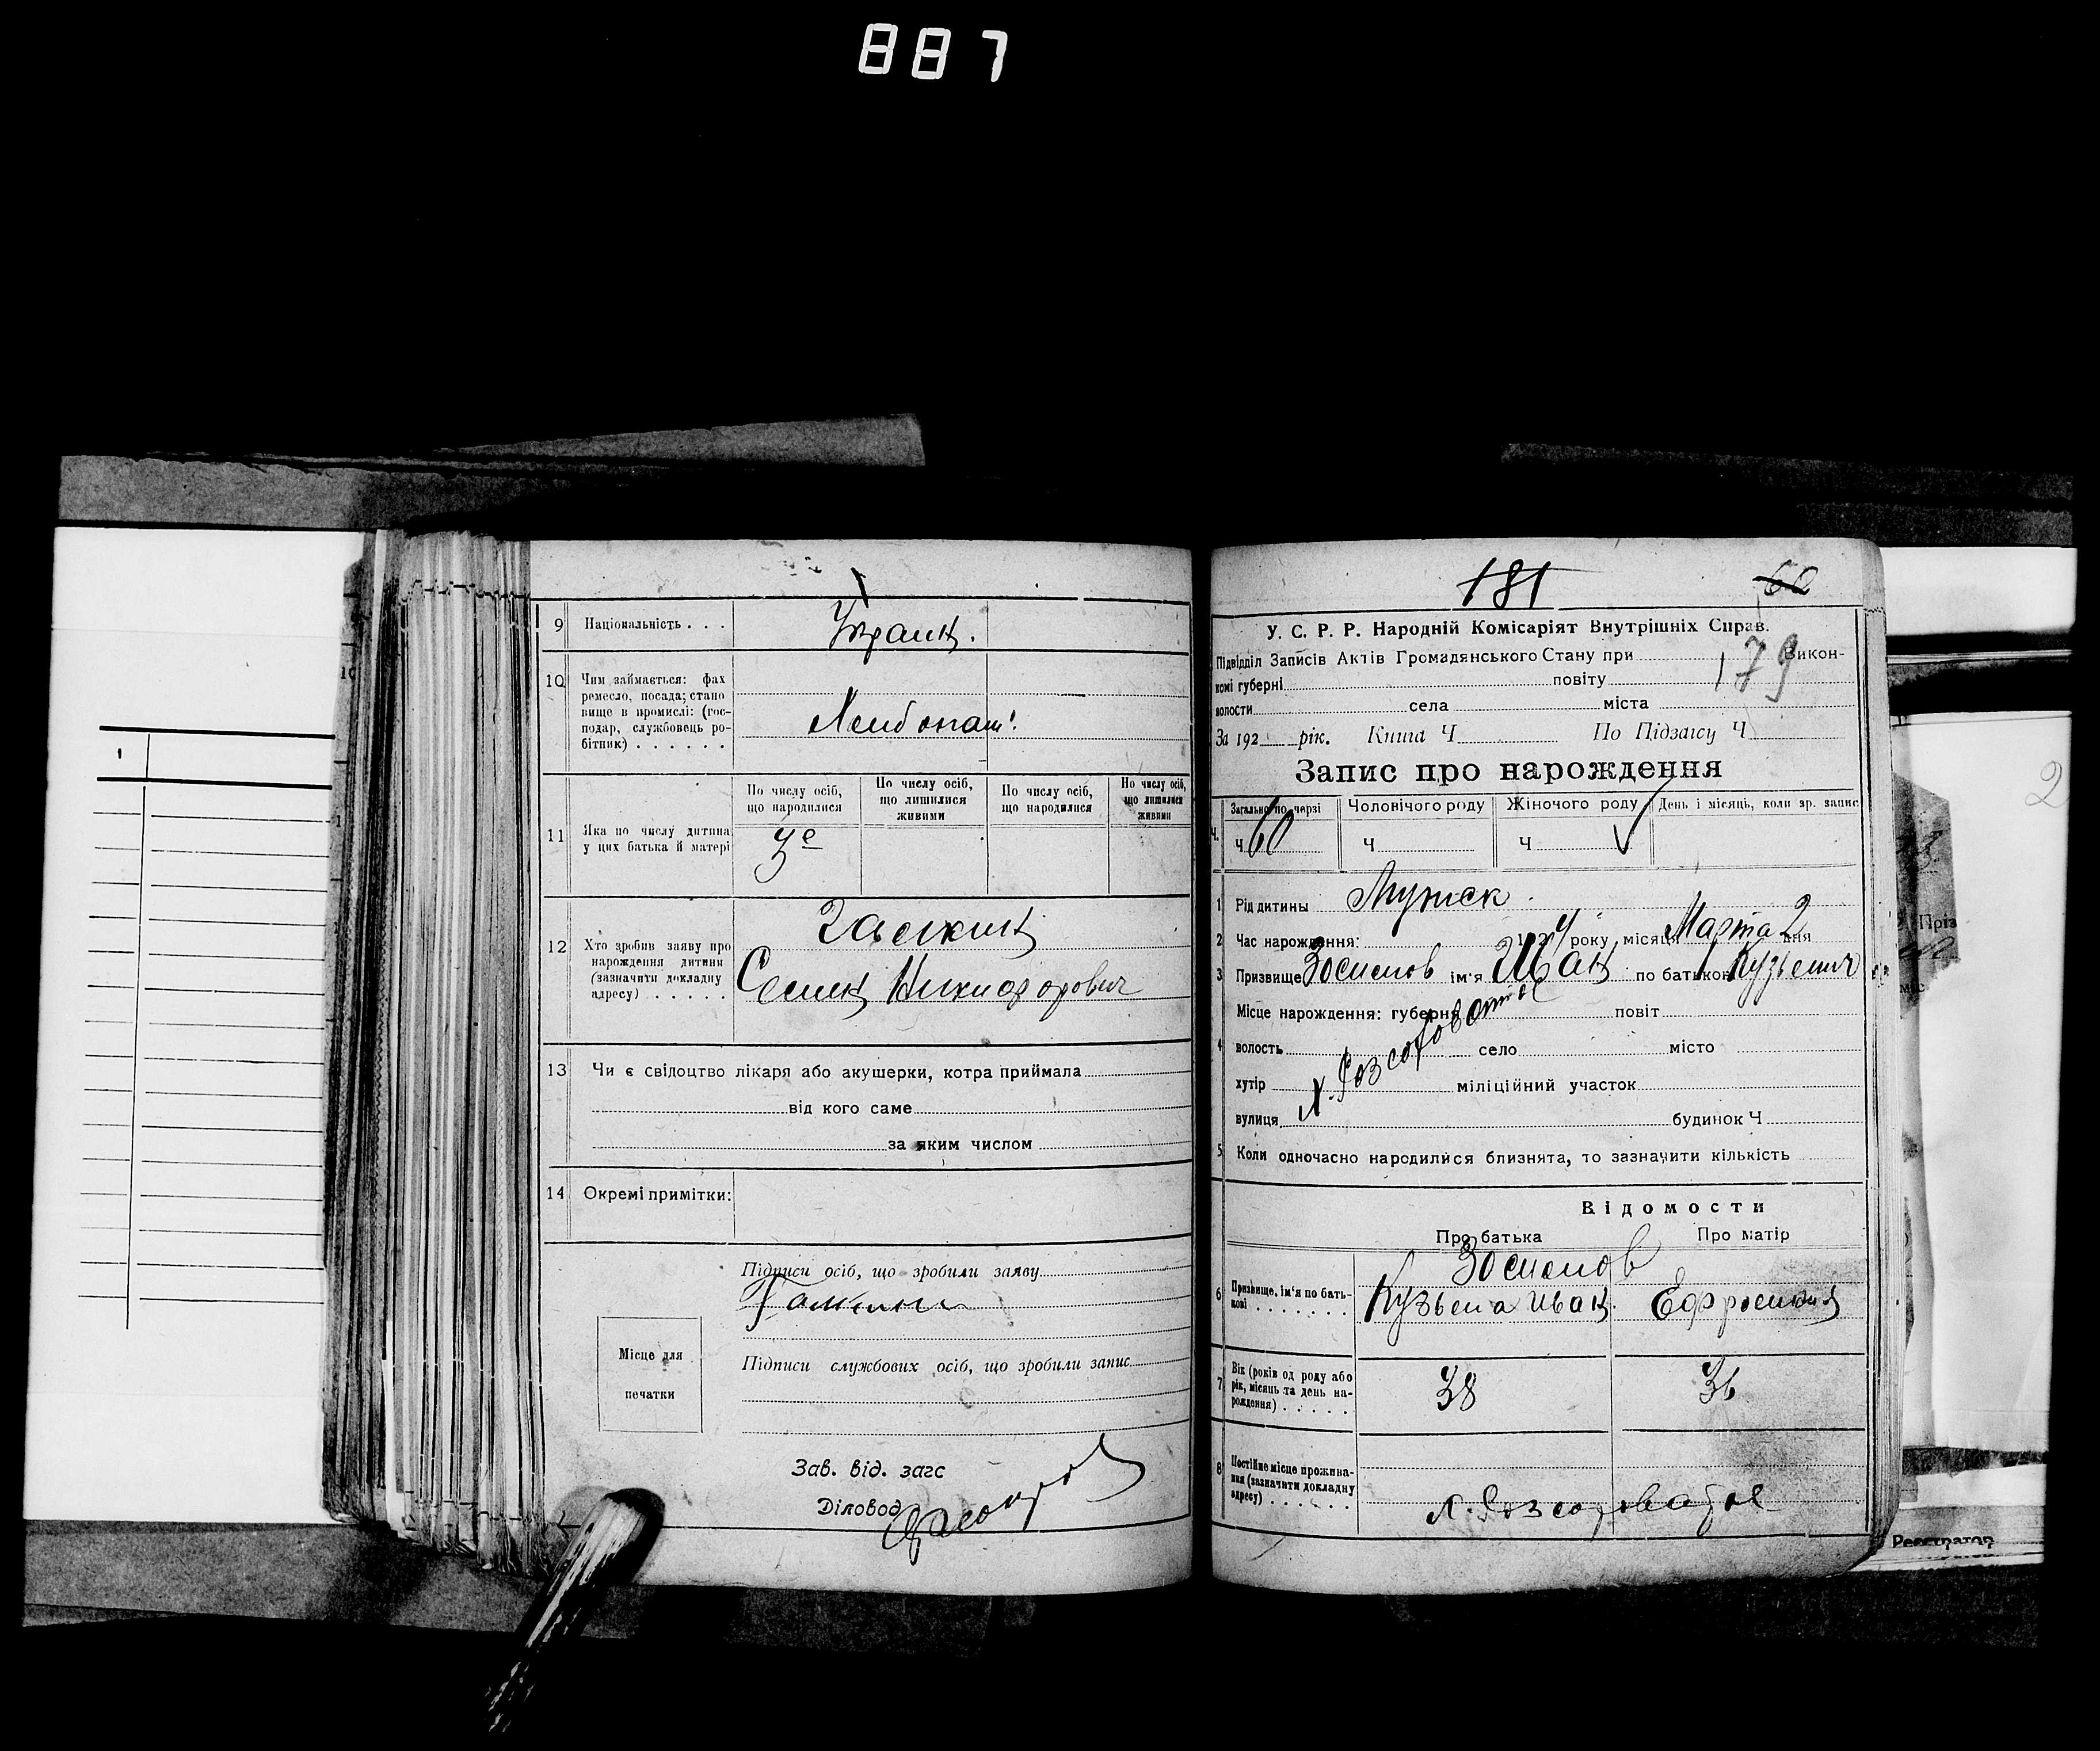 887
9 Національність . . .
Украин.
10 Чим займається: фах
ремесло, посада; стано
вище в промислі: (гос-
подар, службовець ро-
бітник) . . . . . .
Хлебопаш!
11 Яка по числу дитина
у цих батька й матері
По числу осіб,
що народилися
По числу осіб,
що лишилися
живими
По числу осіб,
що народилися
По числу осіб,
що лишилися
живими
3е
12 Хто зробив заяву про
нарождення дитини
(зазначити докладну
адресу) . . . . .
Семен Никифорович
13 Чи є свідоцтво лікаря або акушерки, котра приймала
від кого саме
за яким числом
14 Окремі примітки:
Підписи осіб, що зробили заяву
Місце для
печатки
Підписи службових осіб, що зробили запис
Зав. від. загс
Діловод
181
60
У. С. Р. Р. Народній Комісаріят Внутрішніх Справ.
Підвідділ Записів Актів Громадянського Стану при Викон-
179
комі губерні повіту
волости села міста
За 192 рік. Книга Ч По Підзагсу Ч
Запис про нарождення
Загально по черзі
Чоловічого роду
Жіночого роду
День і місяць, коли зр. запис
Ч 60
Ч
Ч
1 Рід дитини Мужск
2 Час нарождення: 1924 року місяця Марта 2 дня
3 Призвище Зосимов ім'я Иван по батькові Кузьмич
Місце нарождення: губерня повіт
4 волость село місто
хутір міліційний участок
х. Розсоховатое
вулиця будинок Ч
5 Коли одночасно народилися близнята, то зазначити кількість
Відомости
Про батька
Про матір
Зосимов
6 Призвище, ім'я по бать-
кові . . . . . . .
Кузьма Иван.
Ефросиния
7 Вік (років од роду або
рік, місяць та день на-
рождення) . . . . .
38
36
8 Постійне місце прожива-
ння (зазначити докладну
адресу) . . . . . . .
х. Розсоховатое
Реєстратор